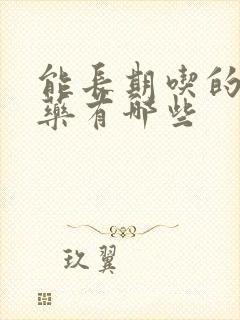 能長期喫的
藥有哪些
玖翼